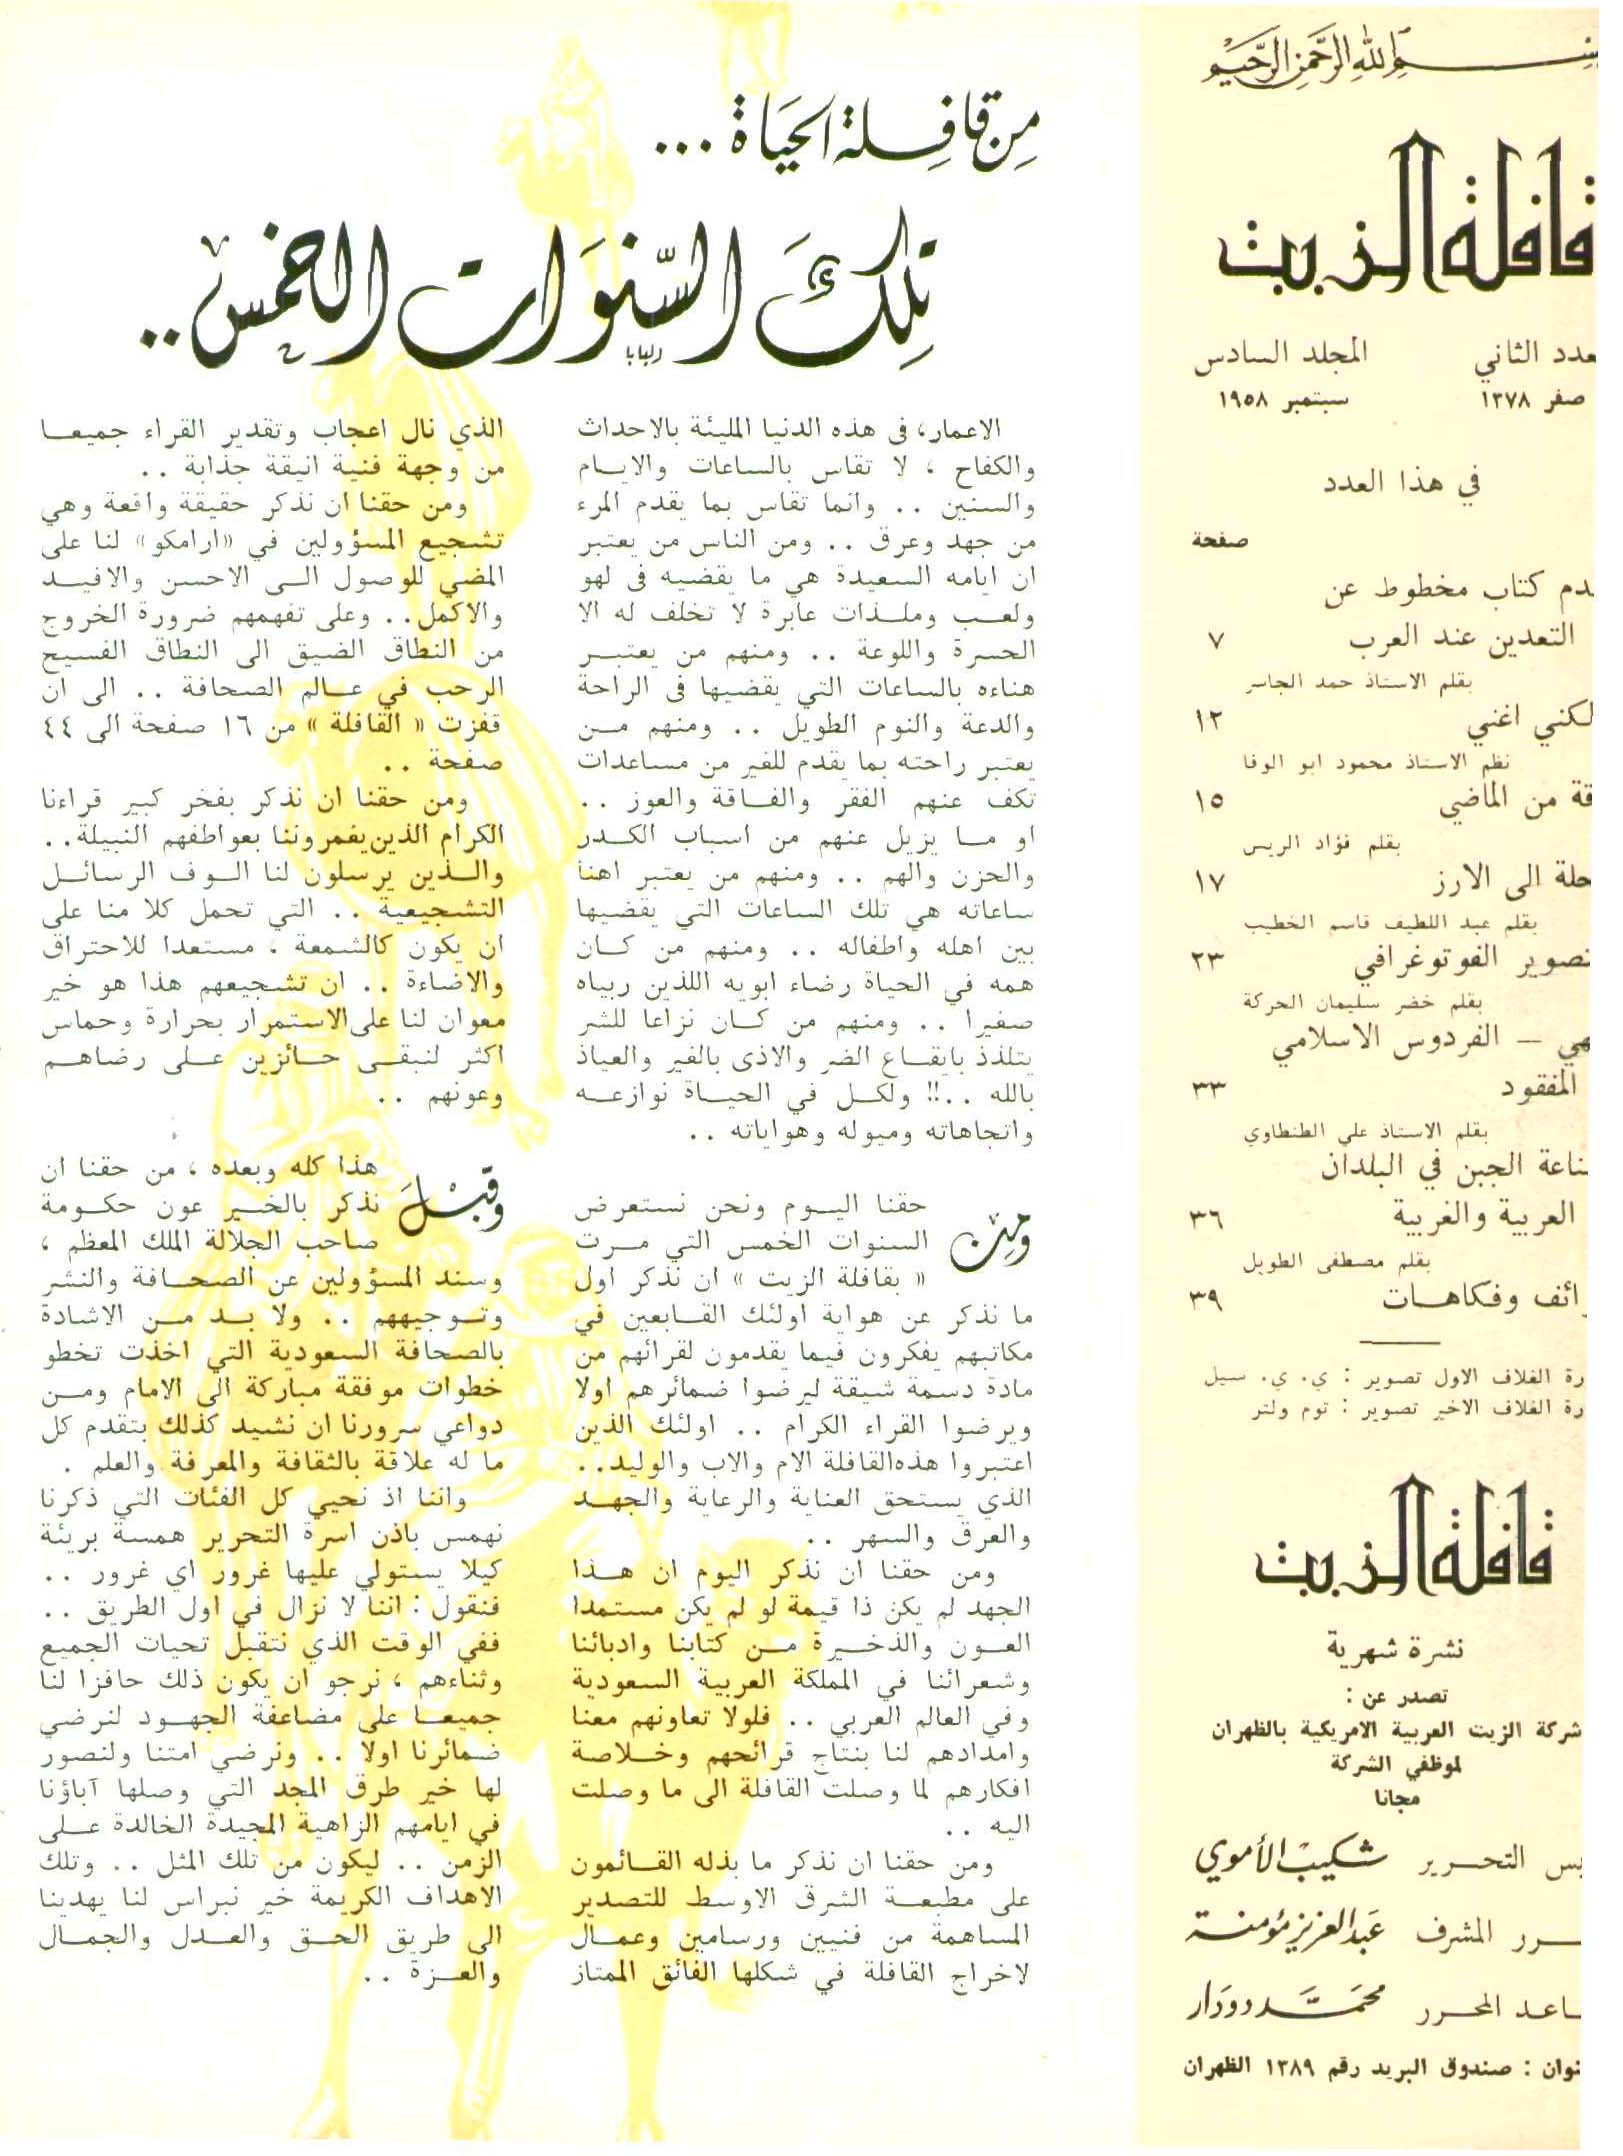 بسم الله الرحمن الرحيم
قافلة الزيت
العدد الثاني المجلد السادس
صفر ١٣٧٨ سبتمبر ١٩٥٨
في هذا العدد
صفحة
كتاب مخطوط عن
التعدين عند العرب ٧
بقلم الاستاذ حمد الجاسر
لكني اغني ١٢
نظم الاستاذ محمود ابو الوفا
من الماضي ١٥
بقلم فؤاد الريس
الى الارز ١٧
بقلم عبد اللطيف قاسم الخطيب
الفوتوغرافي ٢٣
بقلم خضر سليمان الحركة
— الفردوس الاسلامي
المفقود ٣٣
بقلم الاستاذ علي الطنطاوي
الجبن في البلدان
العربية والغربية ٣٦
بقلم مصطفى الطويل
وفكاهات ٣٩
الغلاف الاول تصوير : ي. ي. سيل
الغلاف الاخير تصوير : توم ولتر
قافلة الزيت
نشرة شهرية
تصدر عن :
شركة الزيت العربية الامريكية بالظهران
لموظفي الشركة
مجانا
التحرير شكيب الأموي
المشرف عبد العزيز مؤمنة
المحرر محمد دودار
: صندوق البريد رقم ١٣٨٩ الظهران
من قافلة الحياة ...
تلك السنوات الخمس ..
الاعمار، في هذه الدنيا المليئة بالاحداث
والكفاح ، لا تقاس بالساعات والايام
والسنين .. وانما تقاس بما يقدم المرء
من جهد وعرق .. ومن الناس من يعتبر
ان ايامه السعيدة هي ما يقضيه في لهو
ولعب وملذات عابرة لا تخلف له الا
الحسرة واللوعة .. ومنهم من يعتبر
هناءه بالساعات التي يقضيها في الراحة
والدعة والنوم الطويل .. ومنهم من
يعتبر راحته بما يقدم للغير من مساعدات
تكف عنهم الفقر والفاقة والعوز ..
او ما يزيل عنهم من اسباب الكدر
والحزن والهم .. ومنهم من يعتبر اهنأ
ساعاته هي تلك الساعات التي يقضيها
بين اهله واطفاله .. ومنهم من كان
همه في الحياة رضاء ابويه اللذين ربياه
صغيرا .. ومنهم من كان نزاعا للشر
يتلذذ بايقاع الضر والاذى بالغير والعياذ
بالله ..!! ولكل في الحياة نوازعه
واتجاهاته وميوله وهواياته ..
ومن حقنا اليوم ونحن نستعرض
السنوات الخمس التي مرت
« بقافلة الزيت » ان نذكر اول
ما نذكر عن هواية اولئك القابعين في
مكاتبهم يفكرون فيما يقدمون لقرائهم من
مادة دسمة شيقة ليرضوا ضمائرهم اولا
ويرضوا القراء الكرام .. اولئك الذين
اعتبروا هذه القافلة الام والاب والوليد..
الذي يستحق العناية والرعاية والجهد
والعرق والسهر ..
ومن حقنا ان نذكر اليوم ان هذا
الجهد لم يكن ذا قيمة لو لم يكن مستمدا
العون والذخيرة من كتابنا وادبائنا
وشعرائنا في المملكة العربية السعودية
وفي العالم العربي .. فلولا تعاونهم معنا
وامدادهم لنا بنتاج قرائحهم وخلاصة
افكارهم لما وصلت القافلة الى ما وصلت
اليه ..
ومن حقنا ان نذكر ما بذله القائمون
على مطبعة الشرق الاوسط للتصدير
المساهمة من فنيين ورسامين وعمال
لاخراج القافلة في شكلها الفائق الممتاز
الذي نال اعجاب وتقدير القراء جميعا
من وجهة فنية انيقة جذابة ..
ومن حقنا ان نذكر حقيقة واقعة وهي
تشجيع المسؤولين في «ارامكو» لنا على
المضي للوصول الى الاحسن والافيد
والاكمل.. وعلى تفهمهم ضرورة الخروج
من النطاق الضيق الى النطاق الفسيح
الرحب في عالم الصحافة .. الى ان
قفزت « القافلة » من ١٦ صفحة الى ٤٤
صفحة ..
ومن حقنا ان نذكر بفخر كبير قراءنا
الكرام الذين يغمروننا بعواطفهم النبيلة..
والذين يرسلون لنا الوف الرسائل
التشجيعية .. التي تحمل كلا منا على
ان يكون كالشمعة ، مستعدا للاحتراق
والاضاءة .. ان تشجيعهم هذا هو خير
معوان لنا على الاستمرار بحرارة وحماس
اكثر لنبقى حائزين على رضاهم
وعونهم ..
وقبل هذا كله وبعده ، من حقنا ان
نذكر بالخير عون حكومة
صاحب الجلالة الملك المعظم ،
وسند المسؤولين عن الصحافة والنشر
وتوجيههم .. ولا بد من الاشادة
بالصحافة السعودية التي اخذت تخطو
خطوات موفقة مباركة الى الامام ومن
دواعي سرورنا ان نشيد كذلك بتقدم كل
ما له علاقة بالثقافة والمعرفة والعلم .
واننا اذ نحيي كل الفئات التي ذكرنا
نهمس باذن اسرة التحرير همسة بريئة
كيلا يستولي عليها غرور اي غرور ..
فنقول : اننا لا نزال في اول الطريق ..
ففي الوقت الذي نتقبل تحيات الجميع
وثناءهم ، نرجو ان يكون ذلك حافزا لنا
جميعا على مضاعفة الجهود لنرضي
ضمائرنا اولا .. ونرضي امتنا ولنصور
لها خير طرق المجد التي وصلها آباؤنا
في ايامهم الزاهية المجيدة الخالدة على
الزمن .. ليكون من تلك المثل .. وتلك
الاهداف الكريمة خير نبراس لنا يهدينا
الى طريق الحق والعدل والجمال
والعزة ..